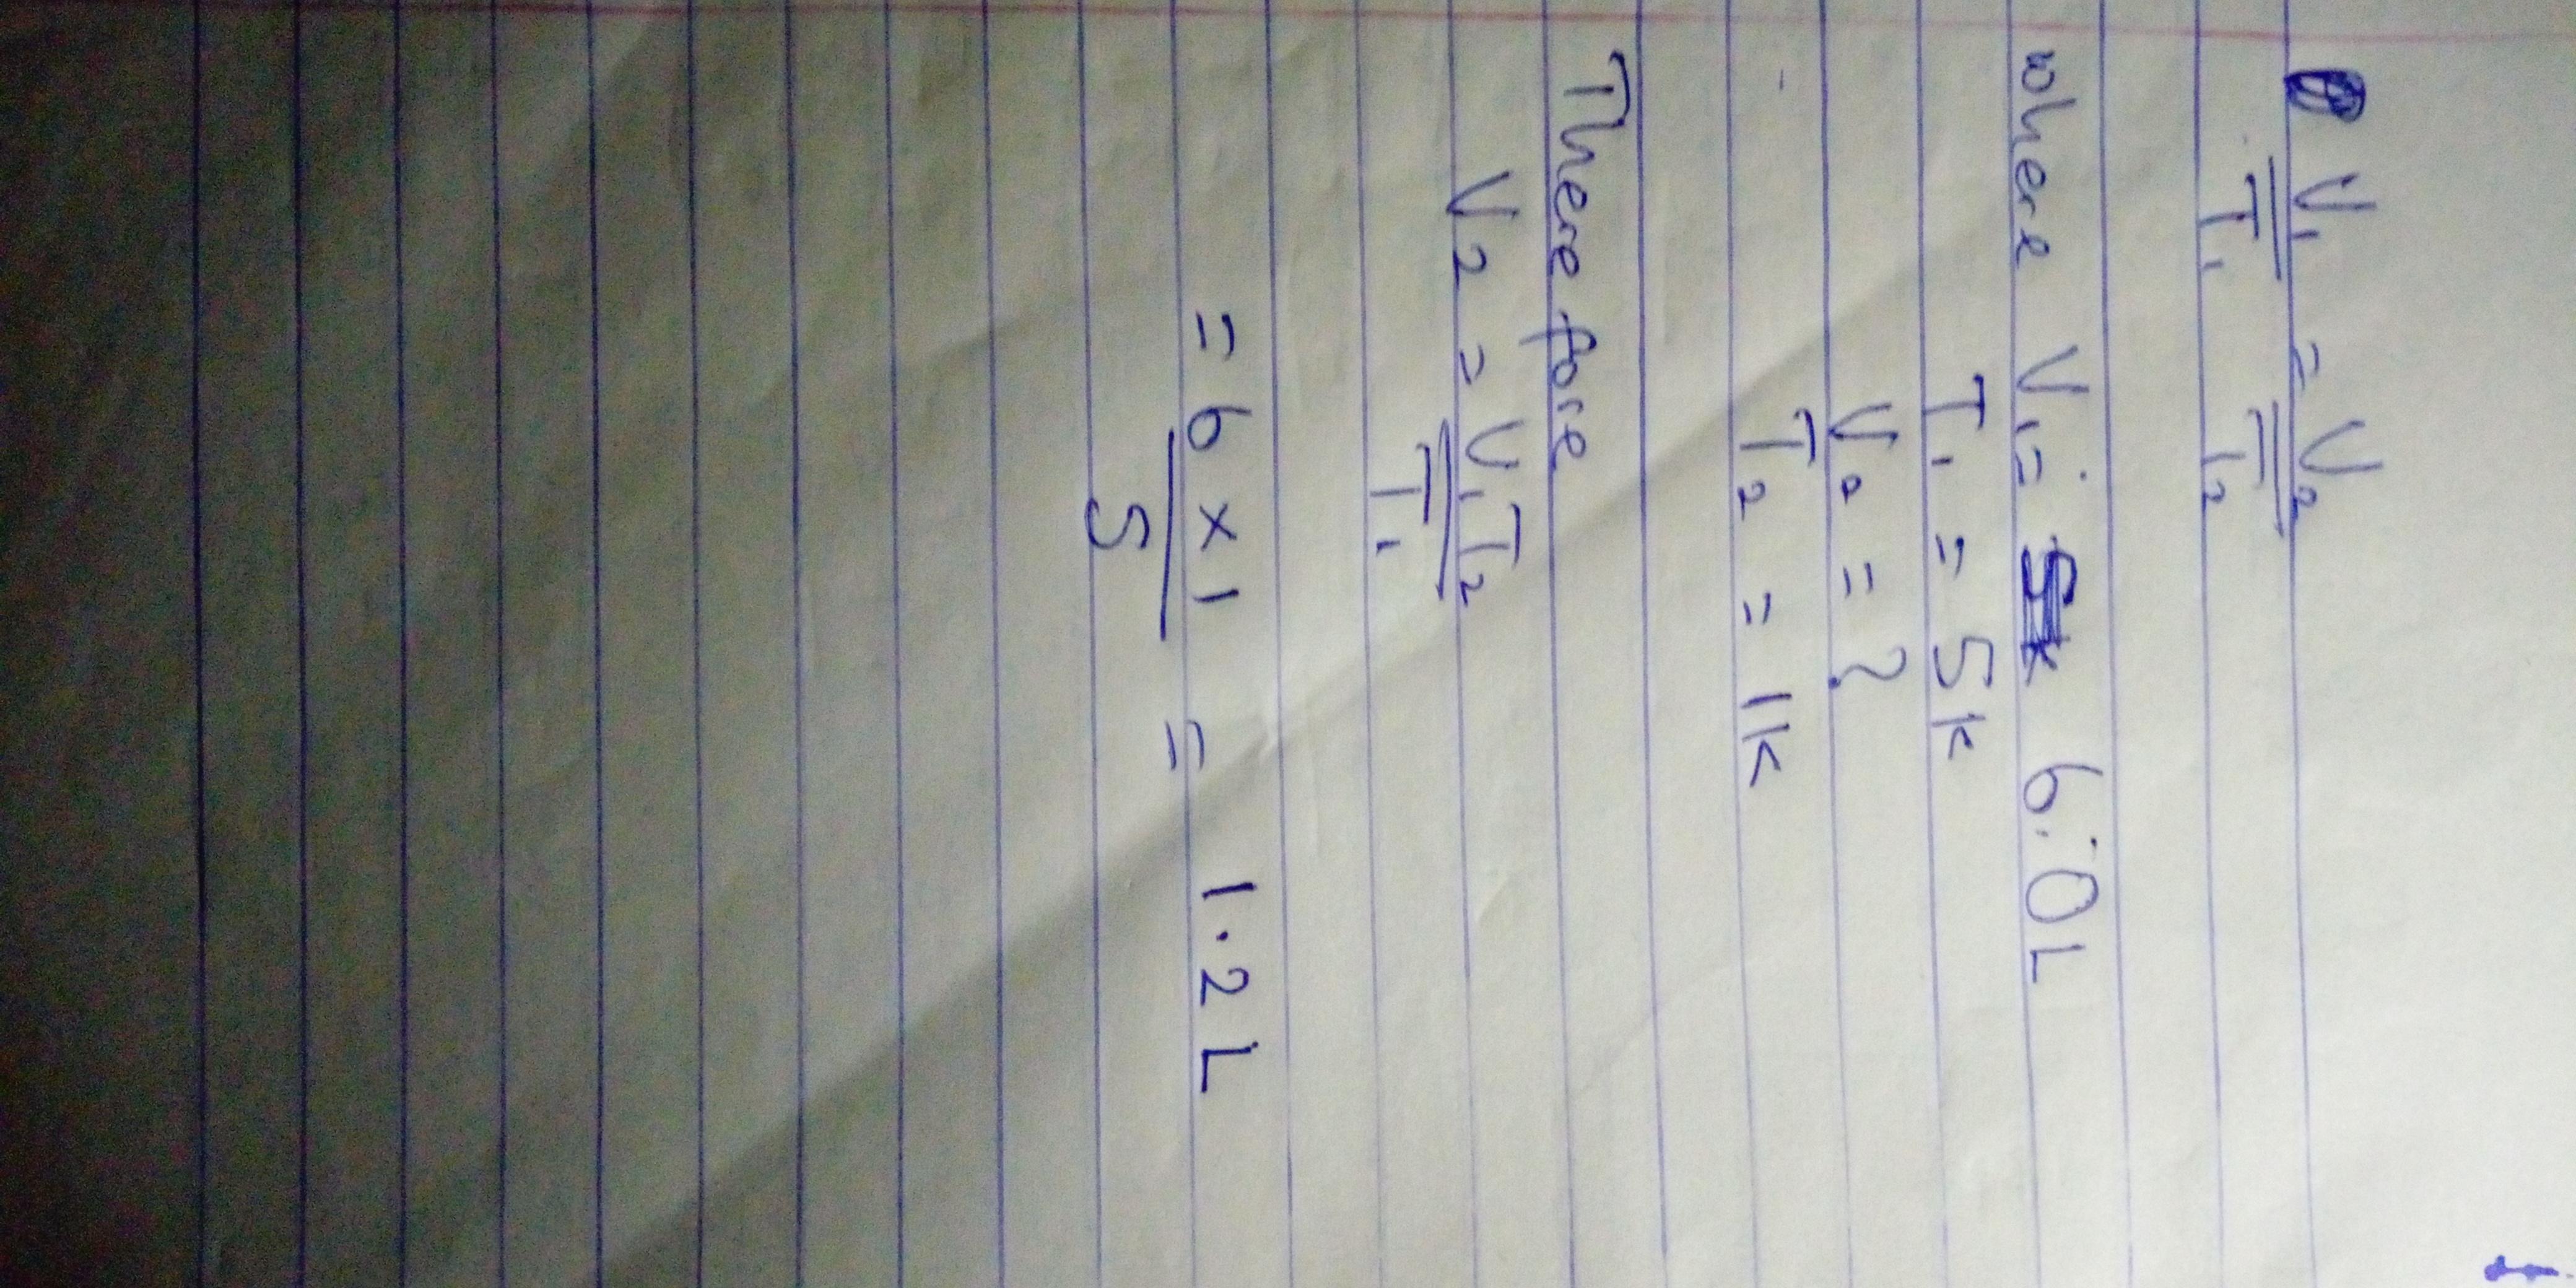 V₁ = V₂
T₁ T₂
where V₁ = 6.0L
T₁ = 5k
V₂ = ?
T₂ = 1k
There fore
V₂ = V₁T₂
T₁
= 6 x 1 = 1.2L
5